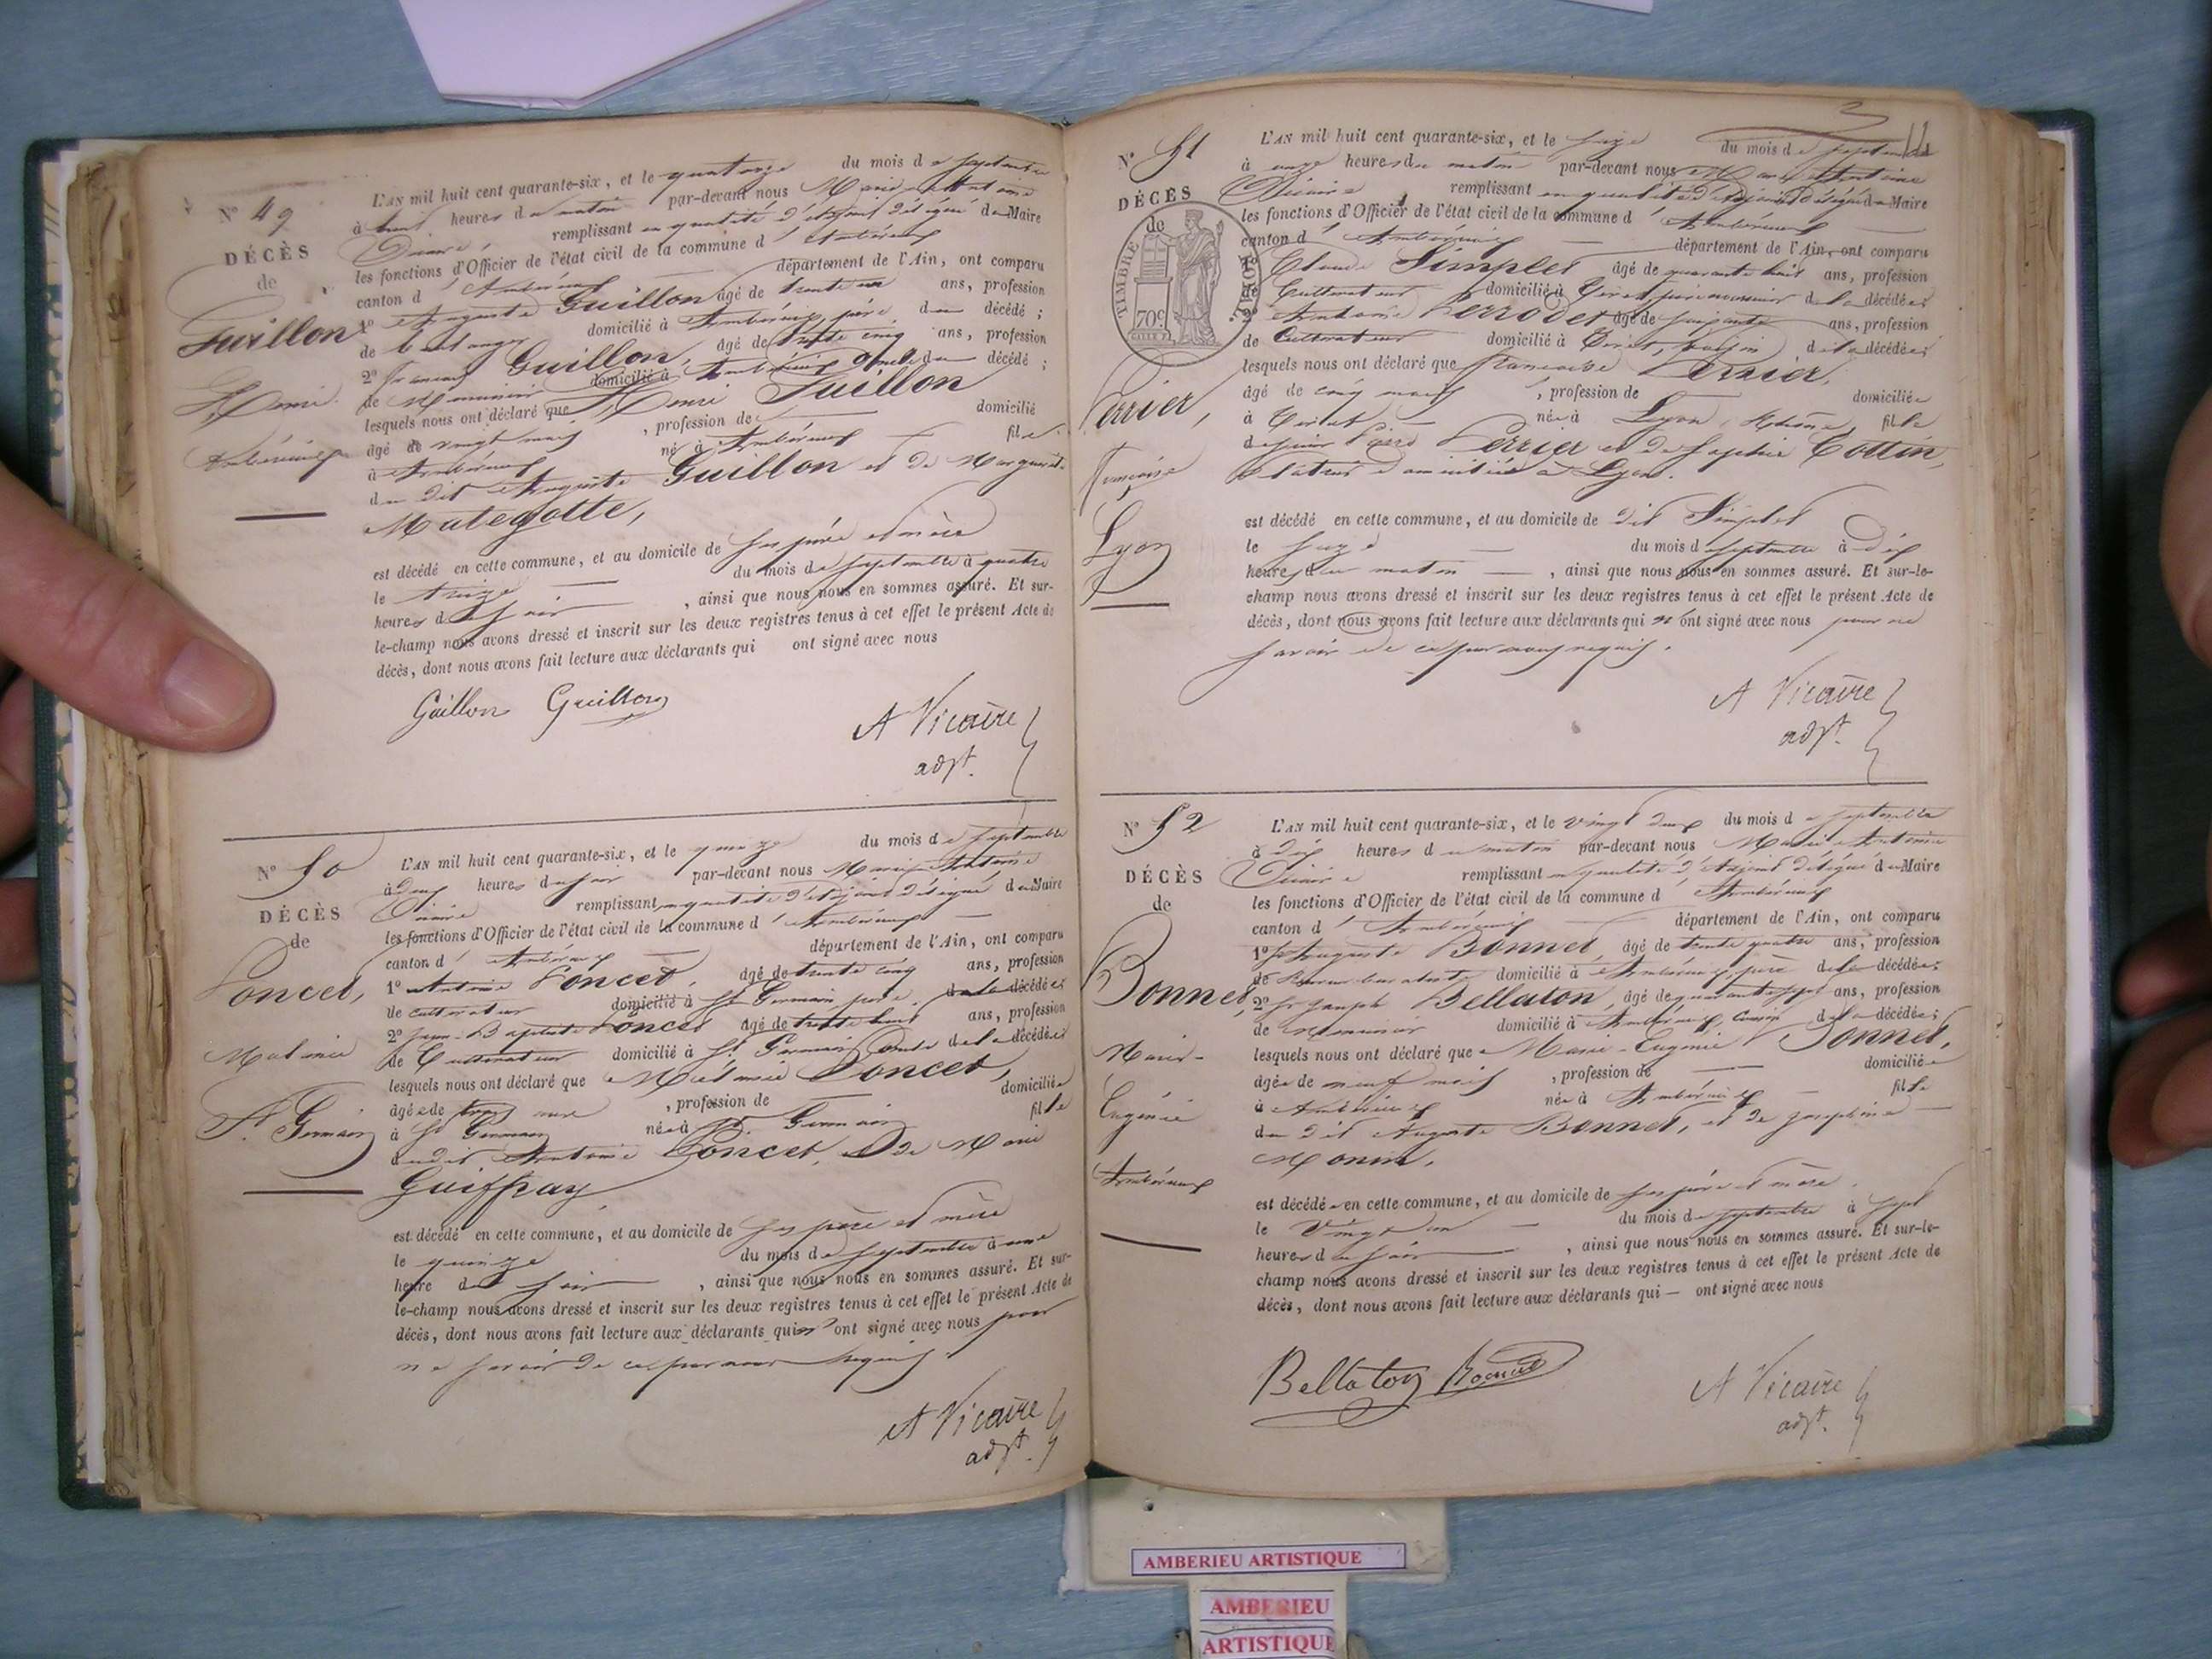 N° 49
DÉCÈS
de
Guillon
Henri.
Ambérieux
L'AN mil huit cent quarante-six, et le quatorze du mois de septembre
à huit heures du matin par-devant nous Marie Antoine
Vicaire remplissant en qualité d'adjoint délégué du Maire
les fonctions d'Officier de l'état civil de la commune d'Ambérieux
canton d'Ambérieux département de l'Ain, ont comparu
1° Auguste Guillon âgé de trente un ans, profession
de boulanger domicilié à Ambérieux, père du décédé ;
2° François Guillon, âgé de trente cinq ans, profession
de Menuisier domicilié à Ambérieux oncle du décédé ;
lesquels nous ont déclaré que Henri Guillon
âgé de vingt mois , profession de domicilié
à Ambérieux né à Ambérieux fils
du dit Auguste Guillon et de Marguerite
Mategotte,
est décédé en cette commune, et au domicile de ses père et mère
le treize du mois de septembre à quatre
heures du soir , ainsi que nous nous en sommes assuré. Et sur-
le-champ nous avons dressé et inscrit sur les deux registres tenus à cet effet le présent Acte de
décès, dont nous avons fait lecture aux déclarants qui ont signé avec nous
Guillon Guillon
A Vicaire
adjt.
N° 50
DÉCÈS
de
Poncet,
Mélanie
St Germain
L'AN mil huit cent quarante-six, et le quinze du mois de septembre
à deux heures du soir par-devant nous Marie Antoine
Vicaire remplissant en qualité d'adjoint délégué du Maire
les fonctions d'Officier de l'état civil de la commune d'Ambérieux
canton d'Ambérieux département de l'Ain, ont comparu
1° Antoine Poncet, âgé de trente cinq ans, profession
de cultivateur domicilié à St Germain père de la décédée ;
2° Jean-Baptiste Poncet âgé de trente huit ans, profession
de Cultivateur domicilié à St Germain oncle de la décédée
lesquels nous ont déclaré que Mélanie Poncet,
âgée de trois ans , profession de domiciliée
à St Germain née à St Germain fille
dudit Antoine Poncet, et de Marie
Guiffray,
est décédé en cette commune, et au domicile de ses père et mère
le quinze du mois de septembre à une
heure du soir , ainsi que nous nous en sommes assuré. Et sur-
le-champ nous avons dressé et inscrit sur les deux registres tenus à cet effet le présent Acte de
décès, dont nous avons fait lecture aux déclarants qui n'ont signé avec nous pour
ne savoir de ce par nous requis
A Vicaire
adjt.
N° 51
DÉCÈS
de
TIMBRE ROYAL
70c
Perrier,
Françoise
Lyon
L'AN mil huit cent quarante-six, et le seize du mois de septembre
à onze heures du matin par-devant nous Marie Antoine
Vicaire remplissant en qualité d'adjoint délégué du Maire
les fonctions d'Officier de l'état civil de la commune d'Ambérieux
canton d'Ambérieux département de l'Ain, ont comparu
Claude Simplet âgé de quarante huit ans, profession
de Cultivateur domicilié à père nourricier de la décédée
2° Antoine Perrodet âgé de soixante ans, profession
de Cultivateur domicilié à voisin de la décédée
lesquels nous ont déclaré que Françoise Perrier,
âgé de cinq mois , profession de domiciliée
à née à Lyon, Rhône, fille
de Pierre Perrier et de Sophie Cottin,
domiciliés à Lyon.
est décédé en cette commune, et au domicile de dit Simplet
le seize du mois de septembre à dix
heures du matin , ainsi que nous nous en sommes assuré. Et sur-le-
champ nous avons dressé et inscrit sur les deux registres tenus à cet effet le présent Acte de
décès, dont nous avons fait lecture aux déclarants qui n'ont signé avec nous pour ne
savoir de ce par nous requis.
A Vicaire
adjt.
N° 52
DÉCÈS
de
Bonnet,
Marie-
Eugénie
Ambérieux
L'AN mil huit cent quarante-six, et le vingt deux du mois de septembre
à dix heures du matin par-devant nous Marie Antoine
Vicaire remplissant en qualité d'Adjoint délégué du Maire
les fonctions d'Officier de l'état civil de la commune d'Ambérieux
canton d'Ambérieux département de l'Ain, ont comparu
1° Auguste Bonnet, âgé de trente quatre ans, profession
de domicilié à Ambérieux, père de la décédée ;
2° Joseph Bellaton, âgé de quarante sept ans, profession
de Menuisier domicilié à Ambérieux, cousin de la décédée ;
lesquels nous ont déclaré que Marie-Eugénie Bonnet,
âgée de neuf mois , profession de domiciliée
à Ambérieux née à Ambérieux fille
du dit Auguste Bonnet, et de Joséphine
Monin.
est décédée en cette commune, et au domicile de ses père et mère.
le vingt un du mois de septembre à sept
heures du soir , ainsi que nous nous en sommes assuré. Et sur-le-
champ nous avons dressé et inscrit sur les deux registres tenus à cet effet le présent Acte de
décès, dont nous avons fait lecture aux déclarants qui — ont signé avec nous
Bellaton Bonnet
A Vicaire
adjt.
AMBERIEU ARTISTIQUE
AMBERIEU
ARTISTIQUE